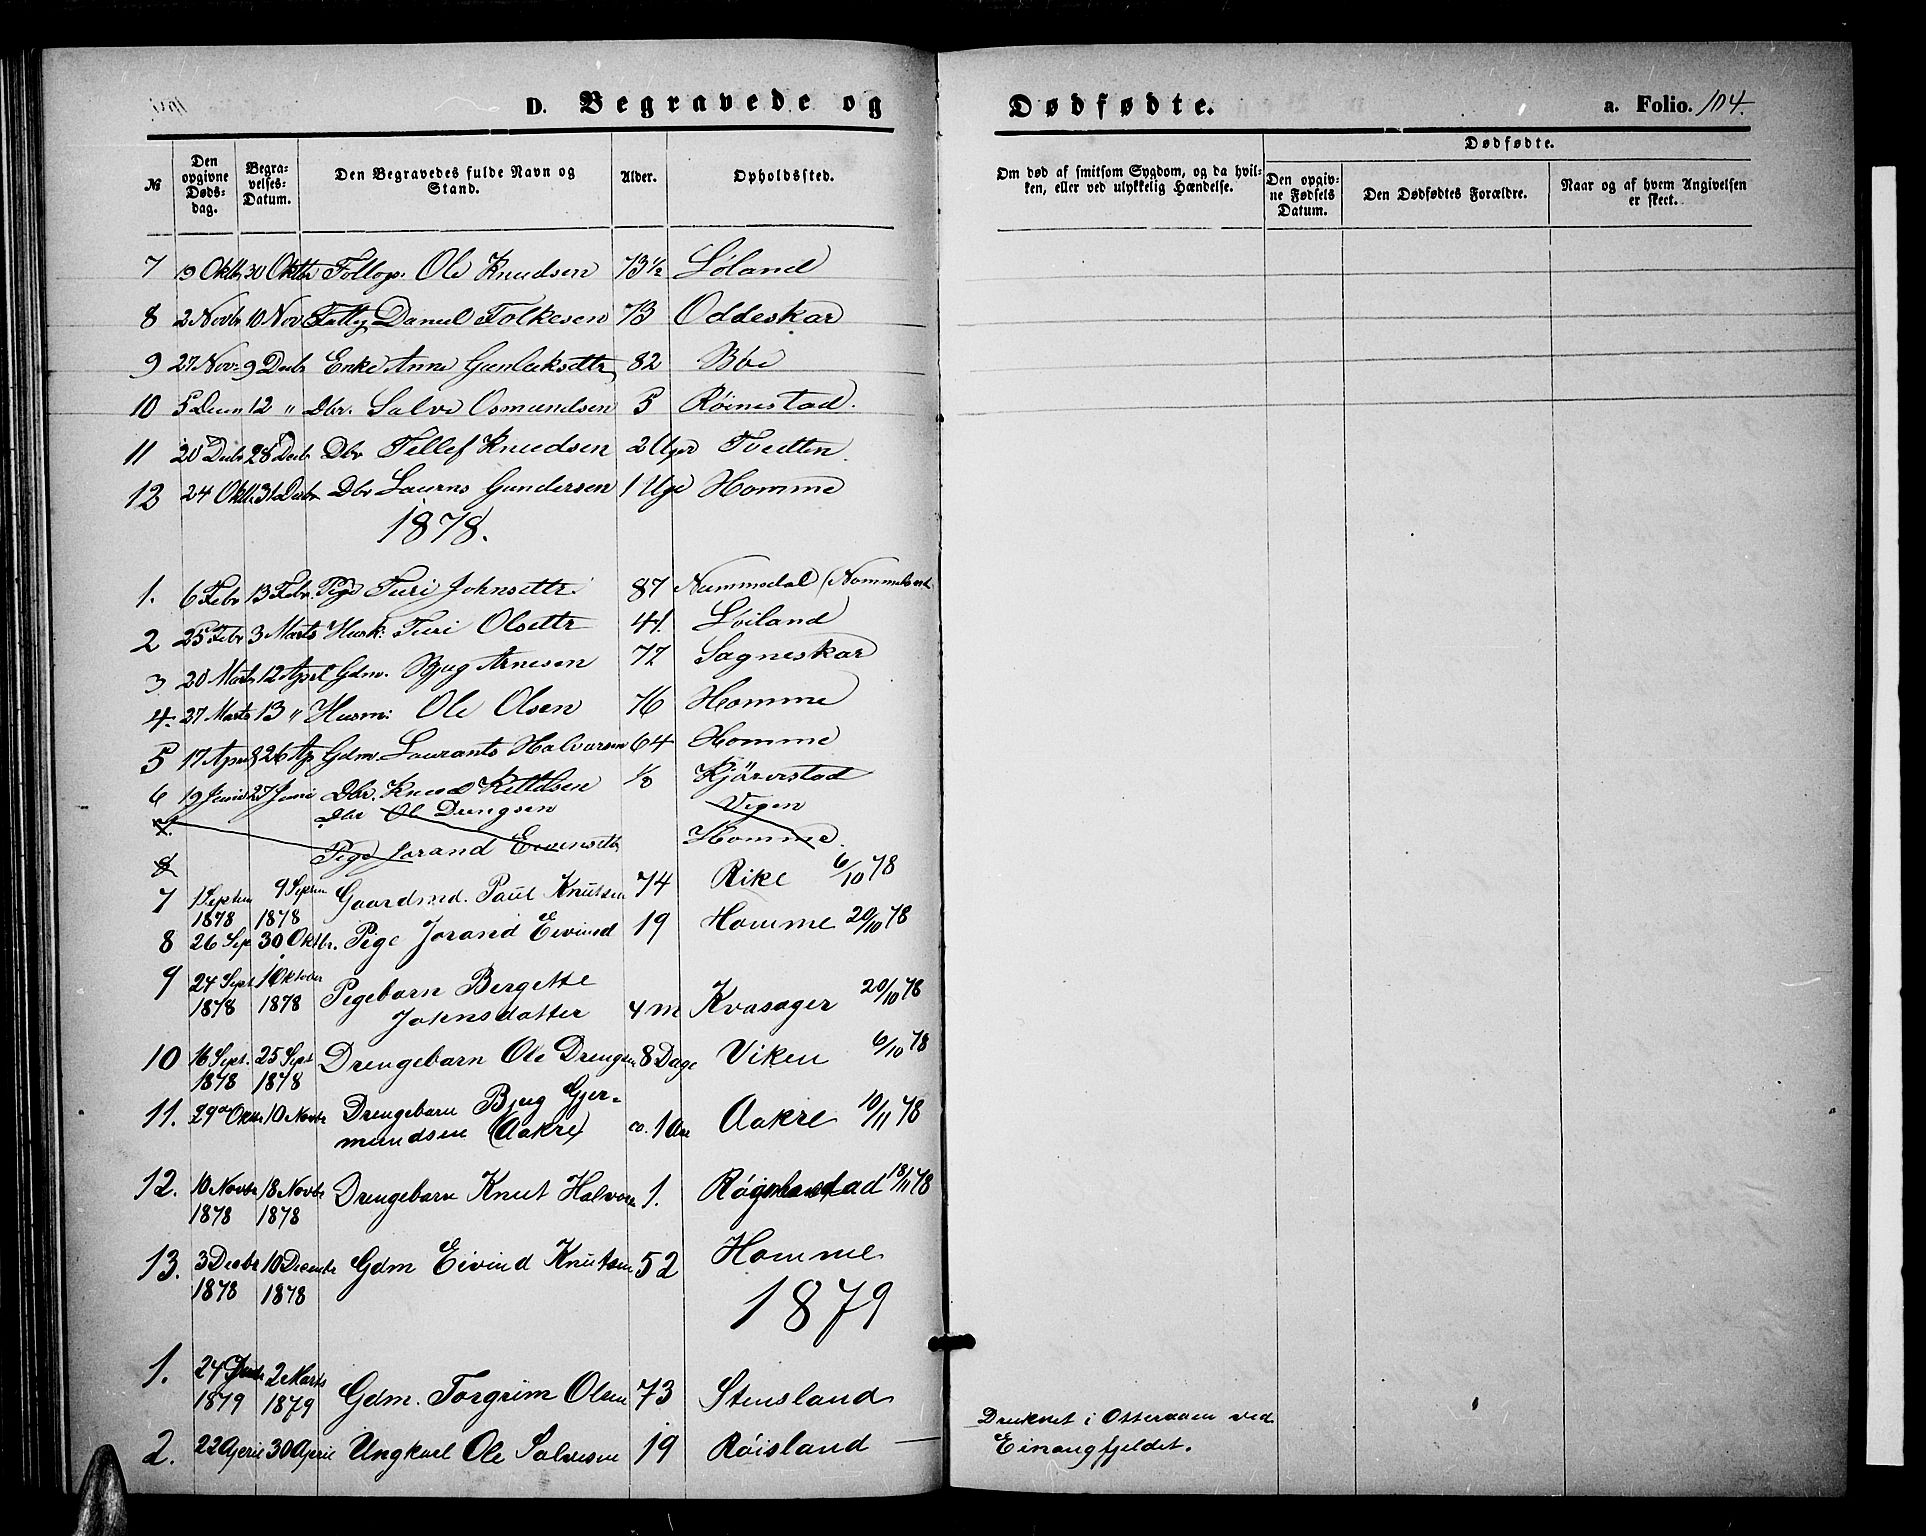 D. Begravede og Dødfødte. a. Folio. 104.
№ Den opgivne Døds-dag. Begra-velses-Datum. Den Begravedes fulde Navn og Stand. Alder. Opholdssted. Om død af smitsom Sygdom, og da hvil-ken, eller ved ulykkelig Hændelse. Dødfødte. Den opgiv-ne Fødsels Datum. Den Dødfødtes Forældre. Naar og af hvem Angivelsen er skeet.
7 9 Oktbr 30 Oktbr Ole Knudsen 73½ Løland
8 2 Novbr 10 Nov Daniel Folkesen 73 Oddeskar
9 27 Novr 9 Decbr Enke Anne 82 Bøe
10 5 Decm 12 " Dbr. Salve Osmundsen 5 Røinestad.
11 20 Decbr 28 Decbr Dbr Tellef Knudsen 2 Uger Tveitten
12 24 Oktb 31 Decbr Dbr Laurns Gundersen 1 Uge Homme
1878.
1. 6 Febr 13 Febr. Pige Turi Johnsdttr. 87 Nummedal
2 25 Febr 3 Marts Husk: Turi Olsdttr 41. Løiland
3 20 Marts 12 April Gdm. Bjug Arnesen 77 Sagneskar
4. 27 Marts 13 " Husm: Ole Olsen 76 Homme
5 17 April 26 Ap Gdm. Laurants Halvorsen 64 Homme
6 19 Juni 27 Juni Dbr. Knud Kittilsen Kjörrestad
7. Dbr Ole Drengsen Vigen
8 Pige Jorand Eivensdtt Homme.
7 1 Septem 1878 9 Septem 1878 Gaardmd. Paul Knutsen 74 Rike 6/10 78
8 26 Sep 30 Oktbr. Pige Jorand Eivind 19 Homme 20/10 78
9 24 Sept 1878 1 Oktober 1878 Pigebarn Bergette
Johnsdatter 4 m Kvasager 20/10 78
10 16 Sept. 1878 25 Sept 1878 Drengebarn Ole Drengsen 8 Dage Viken 6/10 78
11. 29de Oktbr 10 Novbr Drengebarn Bjug Gjer-
mundsen (Aakre) co. 1 Aar Aakre 10/11 78
12. 10 Novbr 1878 18 Novbr 1878 Drengebarn Knut Halvors 1. 18/11 78
13. 3 Decbr 1878 10 Decembr 1878 Gdm Eivind Knutsen 52 Homme
1879
1. 24 1879 2 Marts 1879 Gdm. Torgrim Olsen 73 Stensland
2. 22 April 30 April Ungkarl Ole Salvesen 19 Røisland — Druknet i Otteraaen ved
Einangfjeldet.